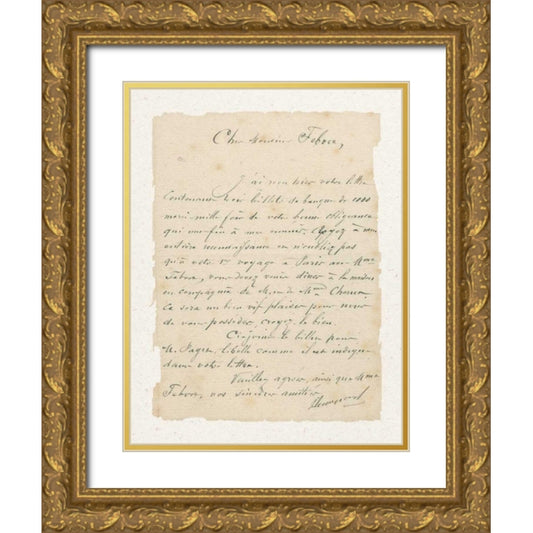 Cher Monsieur Febvre,
J'ai reçu hier votre lettre
contenant billets de banque de 1000
merci mille fois de votre bonne obligeance
qui met fin à mes ennuis. Croyez à mon
entière reconnaissance et n'oubliez pas
qu'à votre 1er voyage à Paris avec Mme
Febvre, vous devez venir dîner à la maison
en compagnie de M. et de Mme
Ce sera un bien vif plaisir pour nous
de vous posséder, croyez le bien.
Ci-joint le billet pour
M. libellé comme il est indiqué
dans votre lettre.
Veuillez agréer, ainsi que Mme
Febvre, nos sincères amitiés